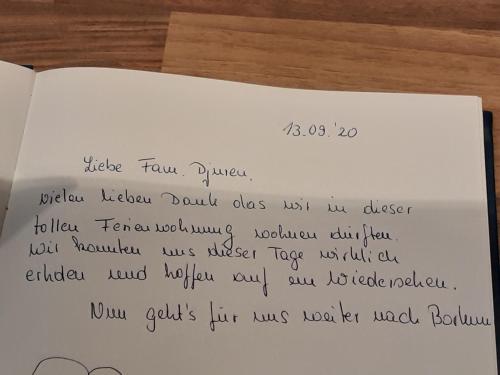 13.09.'20
Liebe Fam. Djuren,
vielen lieben Dank das wir in dieser
tollen Ferienwohnung wohnen dürften.
Wir konnten uns dieser Tage wirklich
erholen und hoffen auf ein Wiedersehen.
Nun geht's für uns weiter nach Borkum